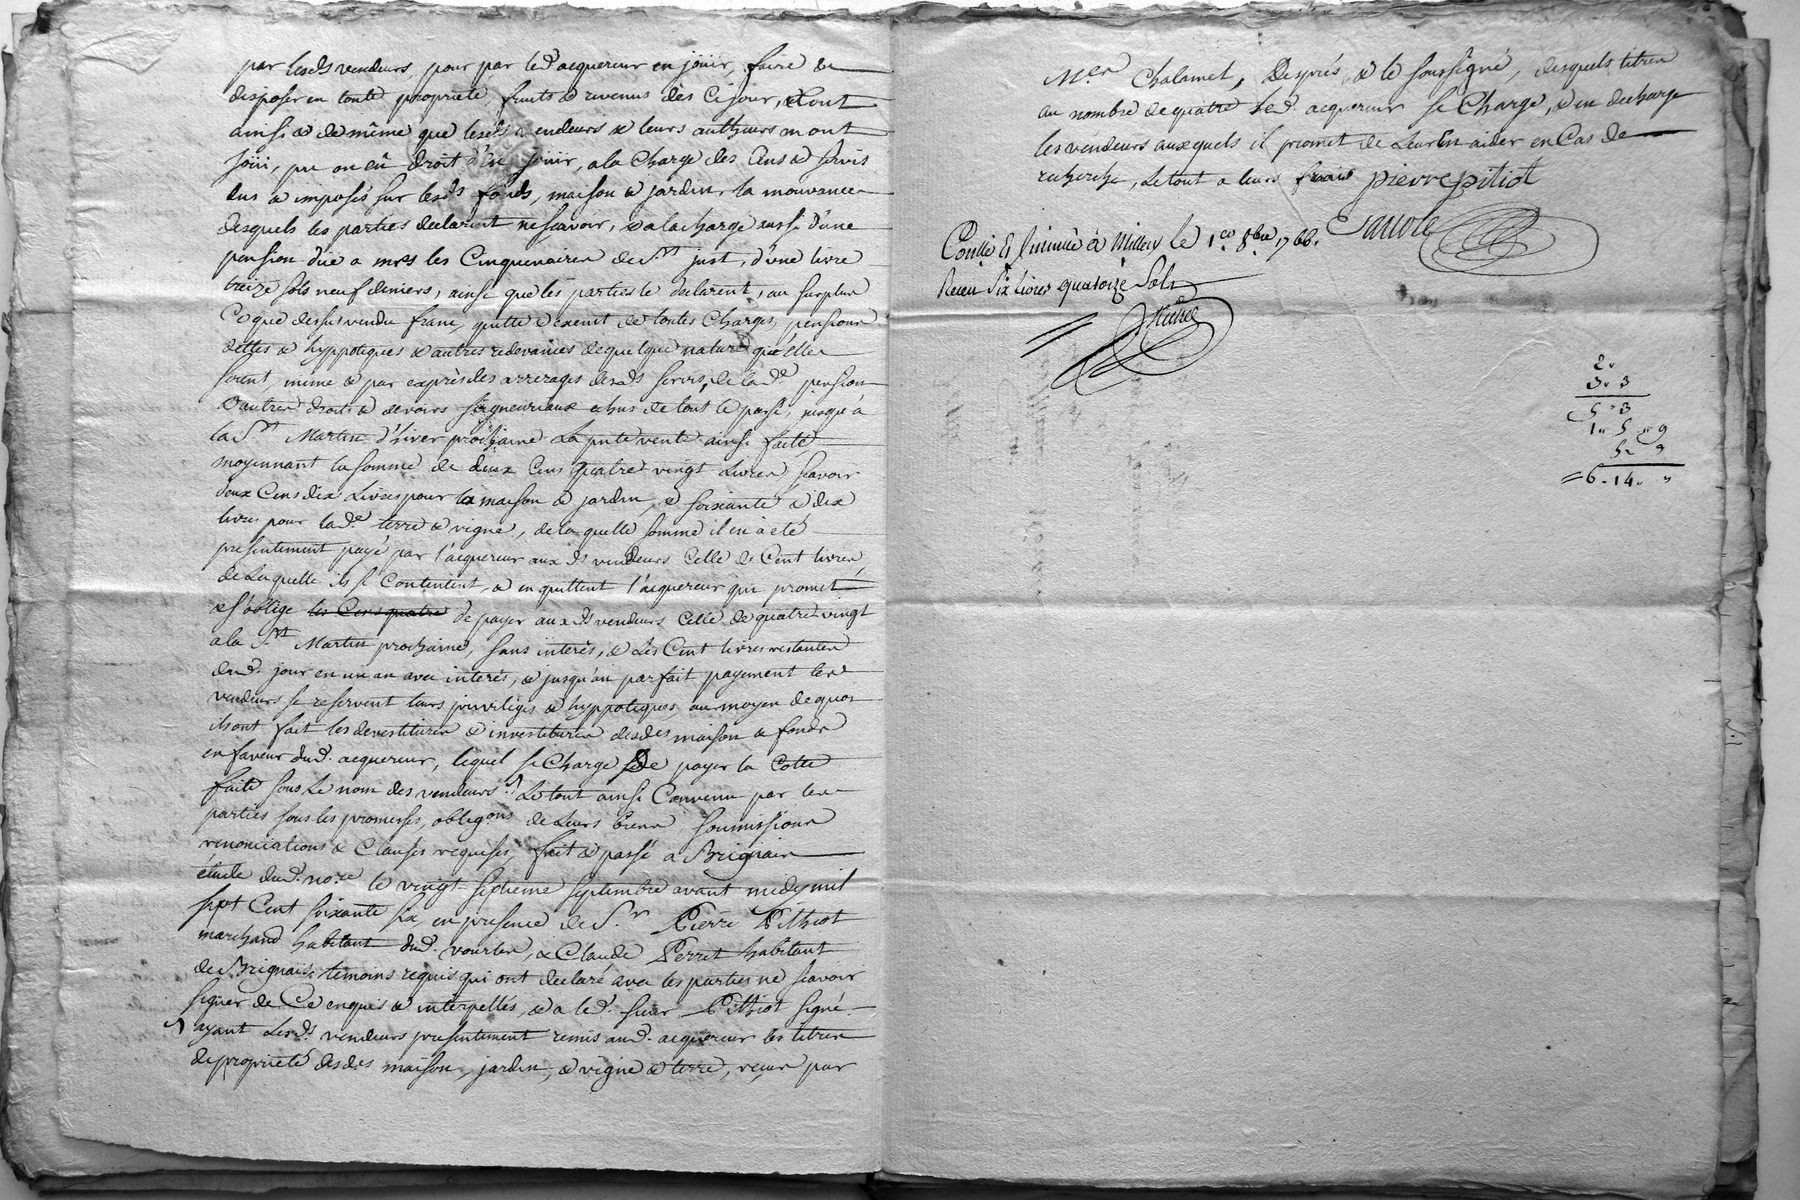 par lesd.s vendeurs, pour par led. acquereur en joüir, faire &
disposer en toute propriété, fruits & revenus dès Cejour, &tout
ainsi & de même que lesd.s vendeurs & leurs autheurs in ont
joüi, pu ou eü droit d'en joüir, ala Charge des Cens & servis
dus & imposés sur lesd.s fonds, maison & jardin, la mouvance
desquels les parties declarent ne scavoir, & alacharge aussi d'une
pension düe a mrs les Cinquenaires de S.t just, d'une livre
treize sols neuf deniers, ainsi que les parties le declarent, au surplus
Ce que dessus vendu franc, quitte & exemt de toutes Charges, pensions
dettes & hyppoteques & autres redevances de quelque nature qu'elles
soient, mème & par exprès des arrerages desd.s servis, de lad.e pension
& autres droits & devoirs seigneuriaux echus de tout le passé, jusqu'à
la S.t Martin d'hiver prochaine La pnte vente ainsi faite
moyennant la somme de deux Cens quatre vingt Livres, scavoir
deux Cens dix Livres pour la maison & jardin, & soixante & dix
livres pour lad.e terre & vigne, de la quelle somme il en a été
presentement payé par l'acquereur aux d.s vendeurs Celle de Cent livres
de Laquelle ils se Contentent, & en quittent l'acquereur qui promet
& s'oblige les Cens quatre de payer aux d.s vendeurs Celle de quatre vingt
ala S.t Martin prochaine, sans interès, & Les Cent livres restantes
dud. jour en un an avec interès, & jusqu'au parfait payement les
vendeurs se reservent leurs privilèges & hyppoteques, au moyen de quoi
ils ont fait les devestitures & investitures desdes maison & fonds
en faveur dud. acquereur, lequel se Charge de payer la Cotte
faite sous Le nom des vendeurs. Le tout ainsi Convenu par les
parties sous les promesses, obligons de Leurs biens soumissions
renonciations & Clauses requises, fait & passé a Brignais
étude dud. no.re le vingt-septieme septembre avant midy mil
sept Cent soixante six en presence de S.r Pierre Pithiot
marchand habitant dud. vourles, & Claude Perret habitant
de Brignais temoins requis qui ont declaré avec les parties ne scavoir
signer de Ce enquis & interpellés, & a led. sieur Pithiot signé.
ayant Lesd.s vendeurs presentement remis aud. acquereur les titres
de propriété desdes maison, jardin, & vigne & terre, reçus par
M.es Chalamel, Desprès, & le soussigné, desquels titres
au nombre de quatre led. acquereur se Charge, & en decharge
les vendeurs auxquels il promet de Leur en aider en Cas de
recherche, Le tout a leurs frais pierre pitiot
Controllé Et Insinué à Millery Le 1.er 8bre 1766.
Receu Six livres quatorze Sols
2"
3" 3
5" 3
1" 5" 9
5" 9
= 6" 14" "